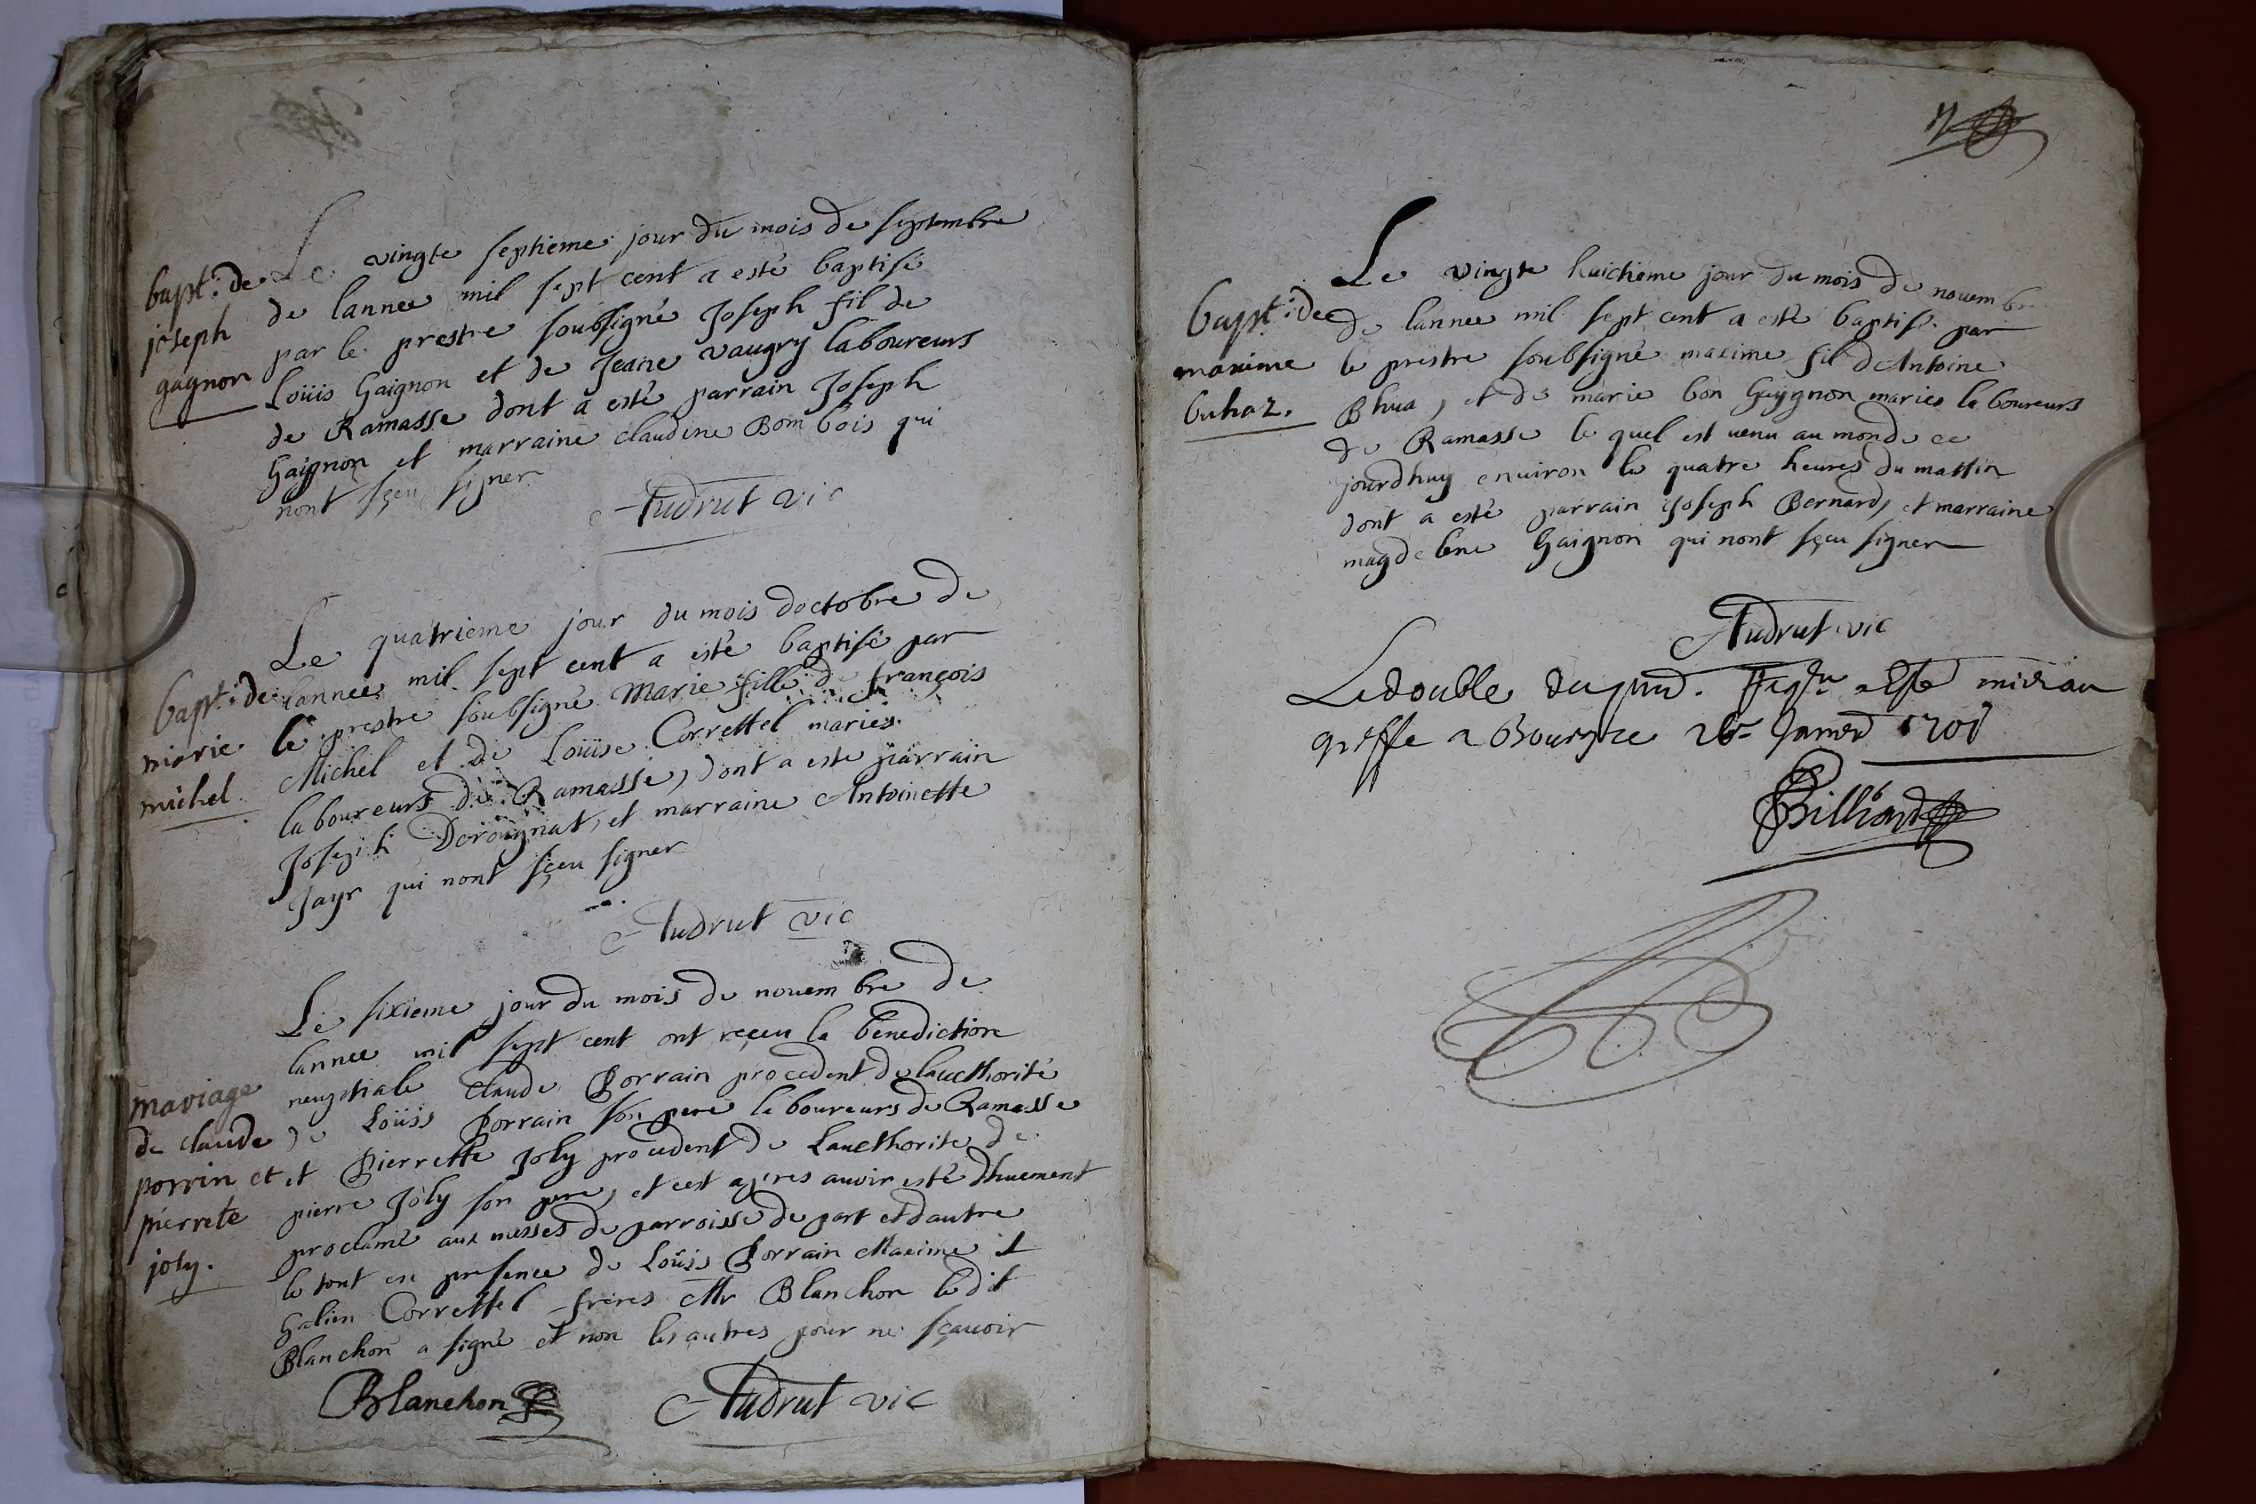 bapt: de
joseph
gagnon
Le vingte septieme jour du mois de septembre
de lannee mil sept cent a esté baptisé
par le prestre soubsigné Joseph fil de
Loüis Gaignon et de Jeane Vaugry laboureurs
de Ramasse dont a esté parrain Joseph
Gaignon et marraine claudine Bombois qui
nont sçeu signer
Audrut vic
bapt: de
marie
michel
Le quatrieme jour du mois doctobre de
lannee mil sept cent a esté baptisé par
le prestre soubsigné Marie fille de françois
Michel et de Loüise Correttel mariés
laboureurs de Ramasse, dont a este parrain
Joseph Derougnat, et marraine Antoinette
Jayr qui nont sçeu signer
Audrut vic
mariage
de claude
porrin et
pierrete
joly.
Le sixieme jour du mois de nouembre de
lannee mil sept cent ont reçeu la benediction
neuptiale Claude Porrain procedent de laucthorité
de Loüis Porrain son pere laboureurs de Ramasse
et Pierrette Joly procedent de Laucthorite de
pierre Joly son pere, et cest apres auoir esté dhuement
proclamé aux messes de parroisse de part et dautre
le tout en presence de Loüis Porrain Maxime et
Galien Correttel freres Mr Blanchon le dit
Blanchon a signé et non les autres pour ne sçauoir
Blanchon Audrut vic
bapt: de
maxime
buhaz.
Le vingte huictieme jour du mois de nouembre
de lannee mil sept cent a esté baptisé par
le prestre soubsigné maxime fil de Antoine
Bhua, et de marie bon Gaygnon mariés laboureurs
de Ramasse le quel est uenu au monde ce
jourdhuy enuiron les quatre heures du mattin
dont a esté parrain Joseph Bernard, et marraine
magdelene Gaignon qui nont sçeu signer
Audrut vic
Ledouble du pnt. Regre a Esté mis au
greffe a Bourg ce Janvier 1701
Billiard